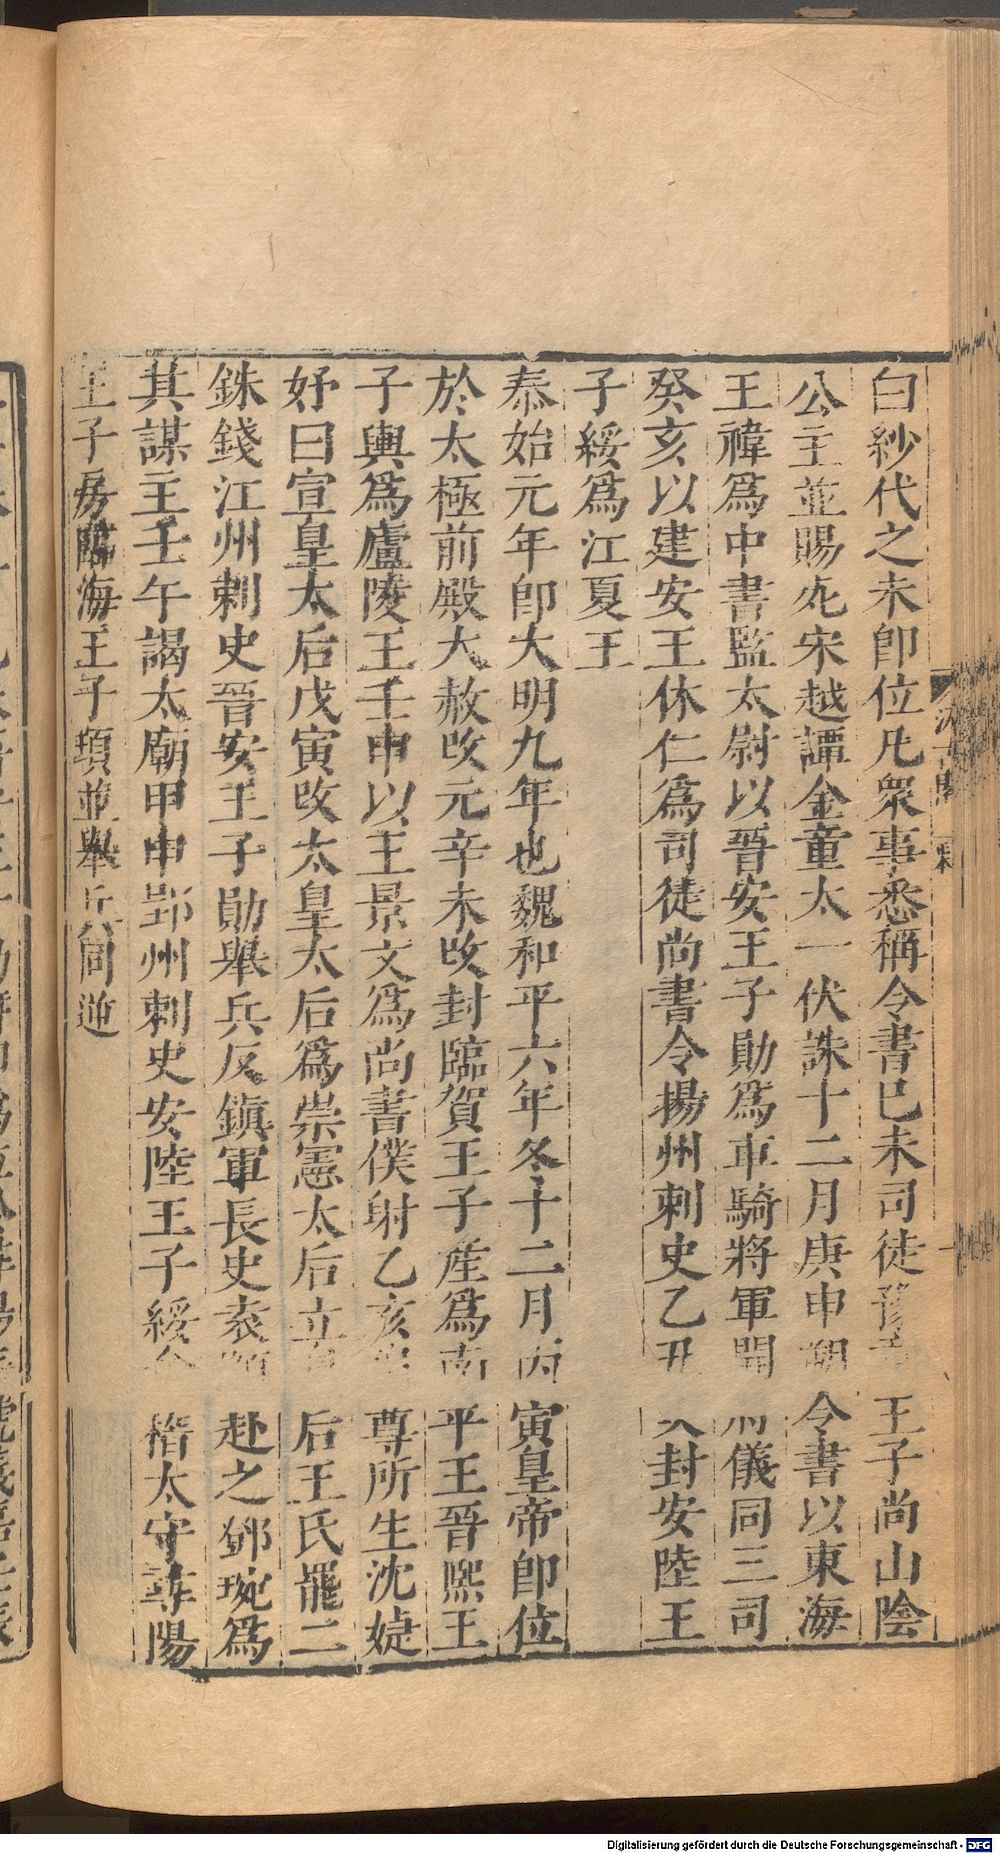 白紗代之未即位凡衆事悉稱令書巳未司徒豫章王子尚山陰
公主並賜死宋越譚金童太一伏誅十二月庚申朔令書以東海
王禕爲中書監太尉以晉安王子勛爲車騎將軍開府儀同三司
癸亥以建安王休仁爲司徒尚書令揚州刺史乙丑封安陸王
子綏爲江夏王
泰始元年即大明九年也魏和平六年冬十二月丙寅皇帝即位
於太極前殿大赦改元辛未改封臨賀王子産爲南平王晉熙王
子輿爲廬陵王壬申以王景文爲尚書僕射乙亥尊所生沈婕
妤曰宣皇太后戊寅改太皇太后爲崇憲太后立皇后王氏罷二
銖錢江州刺史晉安王子勛舉兵反鎭軍長史袁顗赴之鄧琬爲
其謀主壬午謁太廟甲申郢州刺史安陸王子綏會稽太守尋陽
王子房臨海王子頊並舉兵同逆
汲古閣
Digitalisierung gefördert durch die Deutsche Forschungsgemeinschaft - DFG